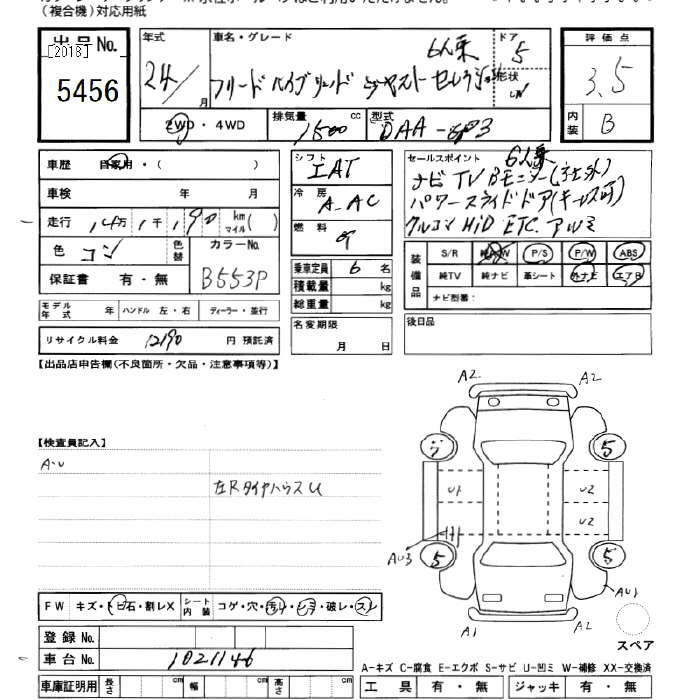 (複合機)対応用紙
出品No.
[2018]
5456
年式
24/ 月
車名・グレード
6人乗
フリード ハイブリッド ジャストセレクション
ドア
5
形状
2WD・4WD
排気量
1500 cc
型式
DAA-GP3
評価点
3.5
内装
B
車歴 自家用・( )
車検 年 月
走行 14万 1千 190 km マイル( )
色 コン
色替
カラーNo.
B553P
保証書 有・無
モデル年式 年 ハンドル 左・右 ディーラー・並行
リサイクル料金 12190 円 預託済
シフト
IAT
冷房
A.AC
燃料
乗車定員 6 名
積載量 kg
総重量 kg
名変期限
月 日
セールスポイント
6人乗
ナビ TV Bモニター(純正外)
パワースライドドア(キーレス可)
クルコン HiD ETC. アルミ
装備品
S/R 純A/W P/S P/W ABS
純TV 純ナビ 革シート 外ナビ エアB
ナビ型番:
後日品
【出品店申告欄(不良箇所・欠品・注意事項等)】
【検査員記入】
A・U
左RタイヤハウスU
A2 A2
5 5
U1 U2
U2
AU3
5 5
AU1
A1 A2
スペア
FW キズ・トビ石・割レX
シート内装 コゲ・穴・汚レ・シミ・破レ・スレ
登録No.
車台No. 1021146
車庫証明用 長さ cm 幅 cm 高さ cm
A-キズ C-腐食 E-エクボ S-サビ U-凹ミ W-補修 XX-交換済
工具 有・無 ジャッキ 有・無